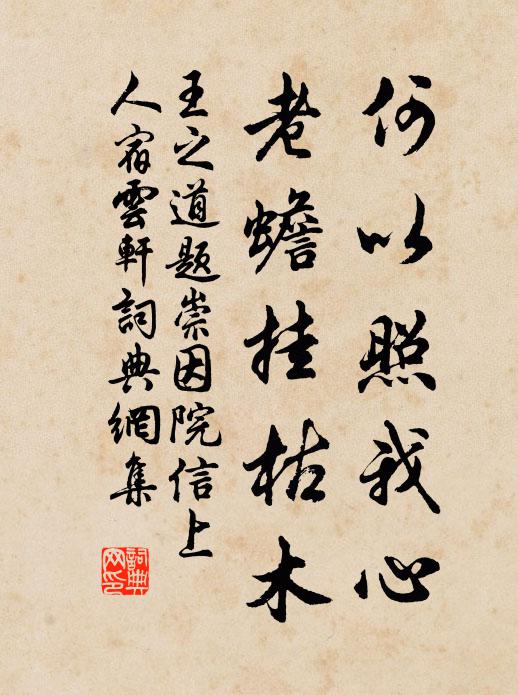 何以照我心
老蟾挂枯木
王之道題崇因院信上
人宿雲軒詞典網集
詞典网印